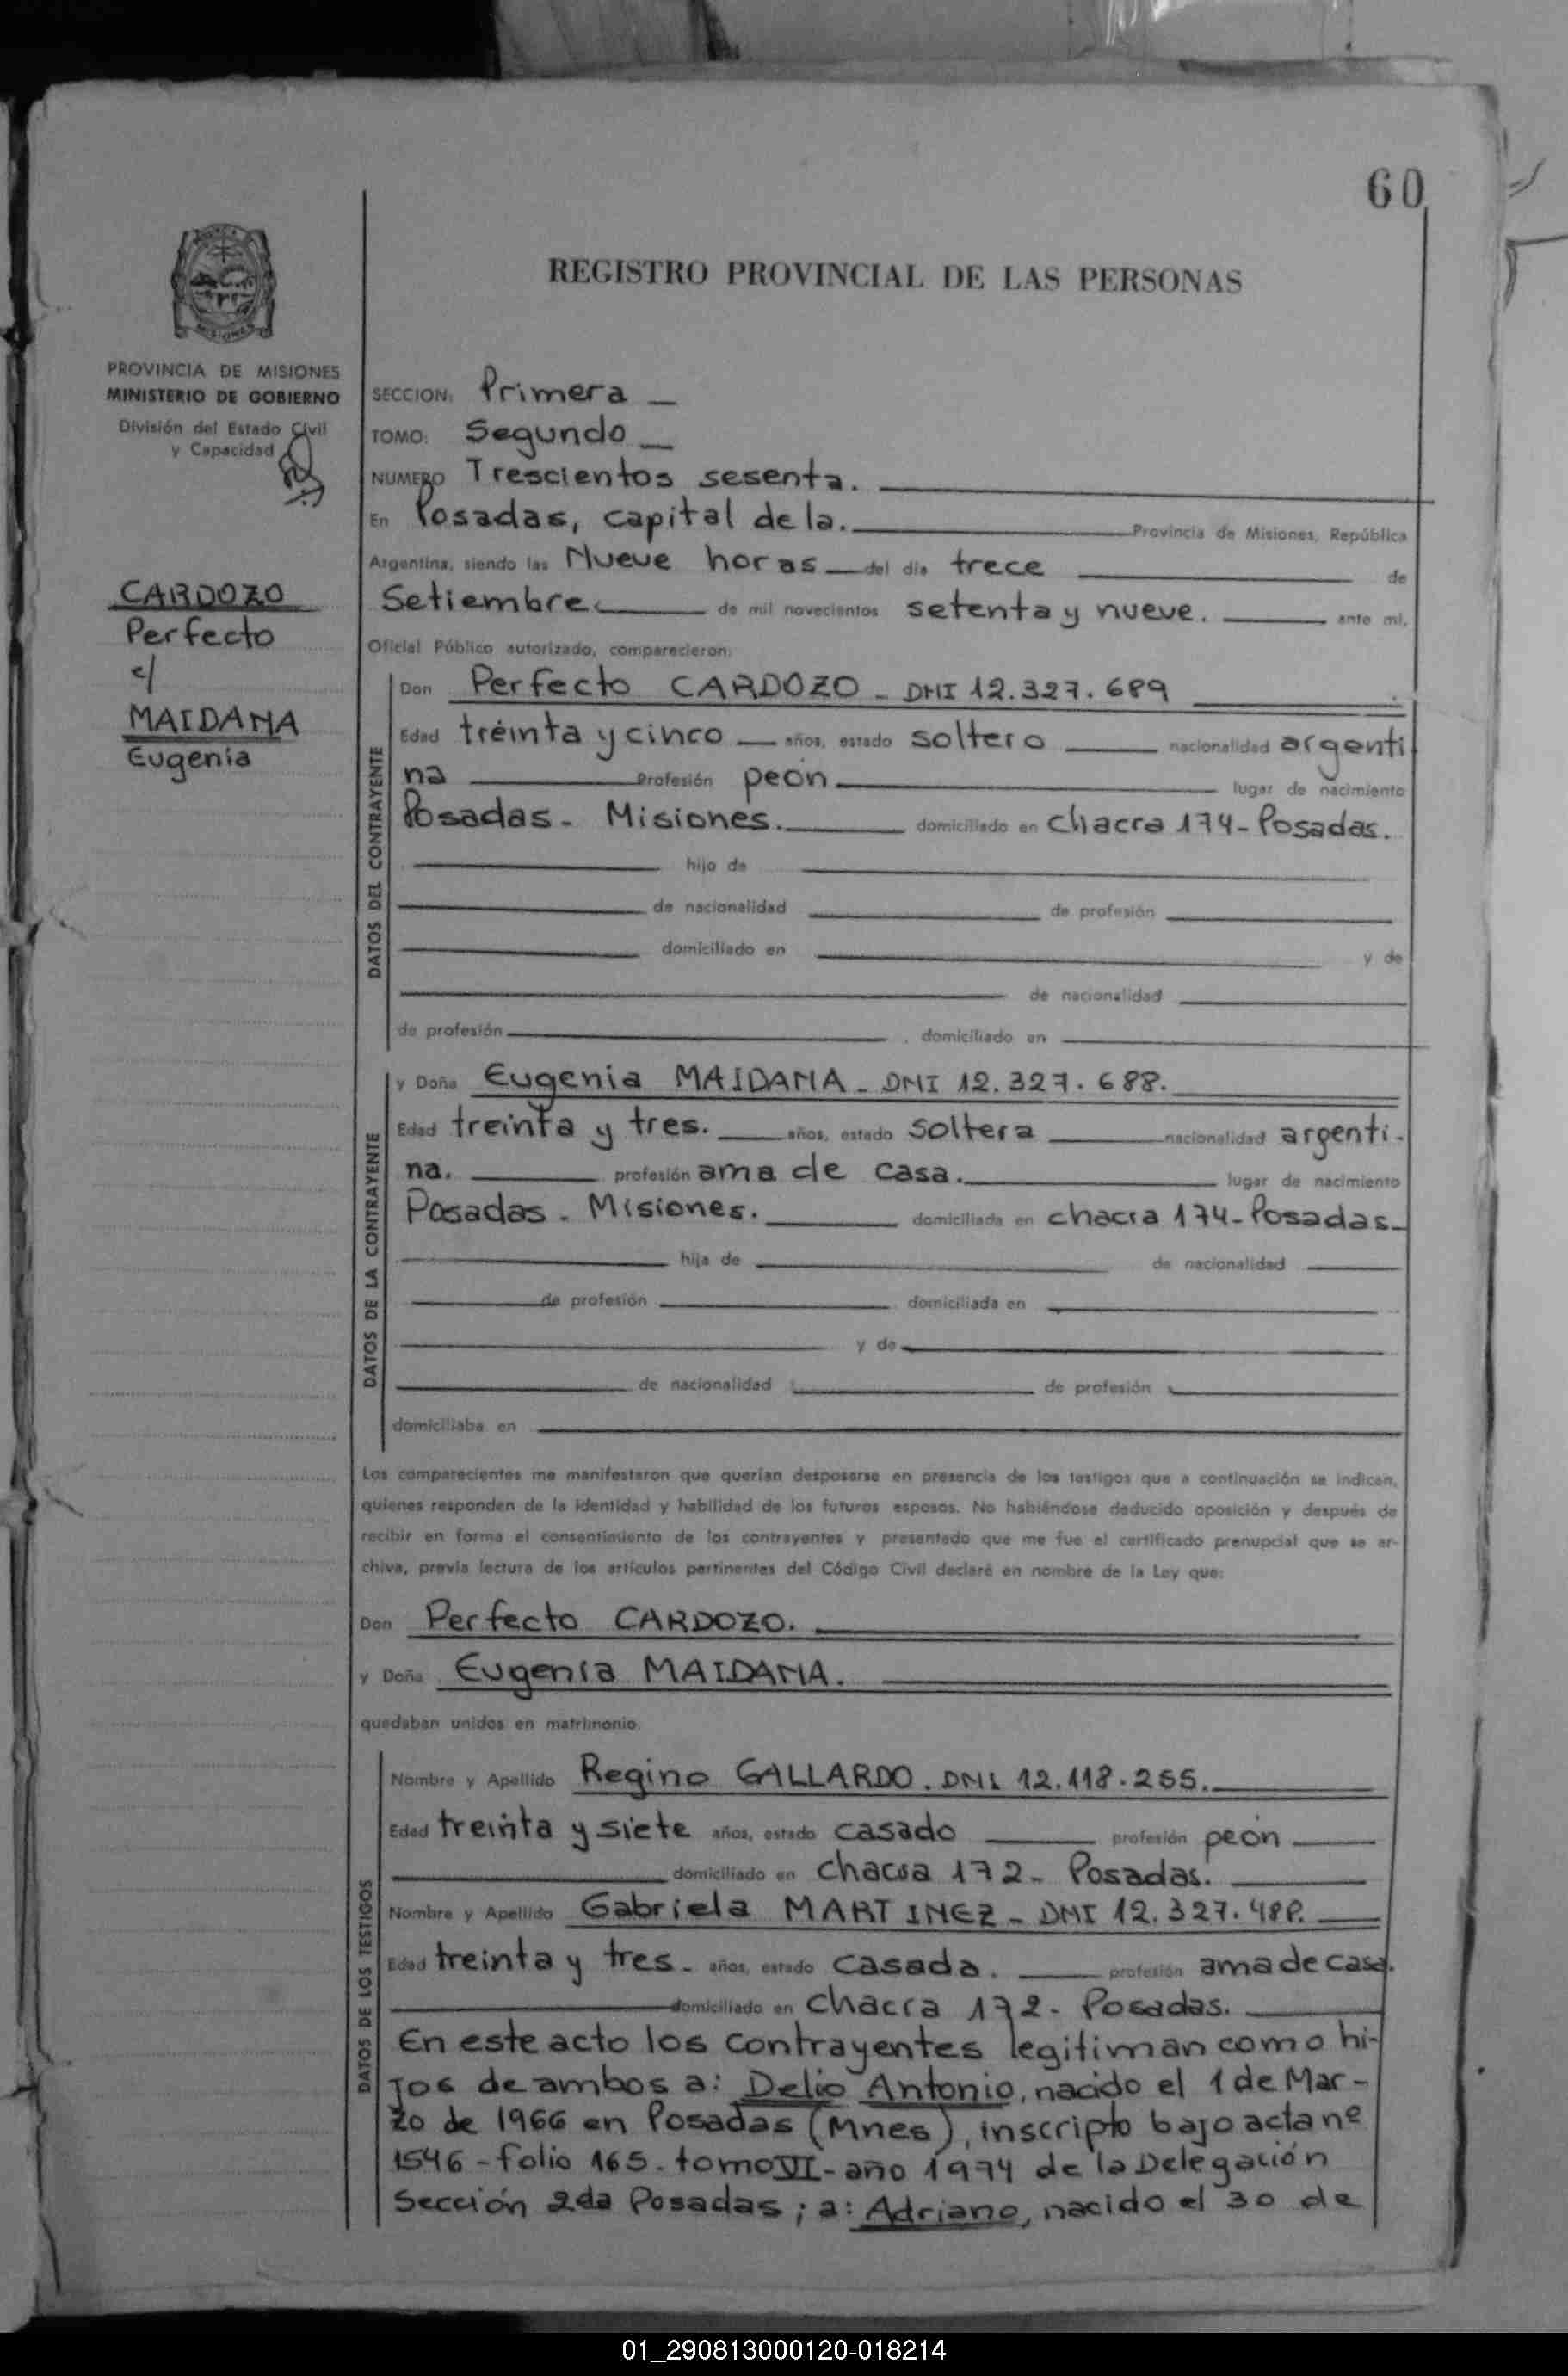 60
REGISTRO PROVINCIAL DE LAS PERSONAS
PROVINCIA DE MISIONES
MINISTERIO DE GOBIERNO
División del Estado Civil
y Capacidad
CARDOZO
Perfecto
c/
MAIDANA
Eugenia
SECCION: Primera
TOMO: Segundo
NUMERO Trescientos sesenta.
En Posadas, capital de la. Provincia de Misiones, República
Argentina, siendo las Nueve horas del día trece de
Setiembre de mil novecientos setenta y nueve. ante mí,
Oficial Público autorizado, comparecieron:
DATOS DEL CONTRAYENTE
Don Perfecto CARDOZO - DNI 12.327.689
Edad treinta y cinco años, estado soltero nacionalidad argenti
na Profesión peón lugar de nacimiento
Posadas - Misiones. domiciliado en chacra 174 - Posadas.
hijo de
de nacionalidad de profesión
domiciliado en y de
de nacionalidad
de profesión , domiciliado en
DATOS DE LA CONTRAYENTE
y Doña Eugenia MAIDANA - DNI 12.327.688.
Edad treinta y tres. años, estado soltera nacionalidad argenti-
na. profesión ama de casa. lugar de nacimiento
Posadas - Misiones. domiciliada en chacra 174 - Posadas -
hija de de nacionalidad
de profesión domiciliada en
y de
de nacionalidad de profesión
domiciliaba en
Los comparecientes me manifestaron que querían desposarse en presencia de los testigos que a continuación se indican,
quienes responden de la identidad y habilidad de los futuros esposos. No habiéndose deducido oposición y después de
recibir en forma el consentimiento de los contrayentes y presentado que me fue el certificado prenupcial que se ar-
chiva, previa lectura de los artículos pertinentes del Código Civil declaré en nombre de la Ley que:
Don Perfecto CARDOZO.
y Doña Eugenia MAIDANA.
quedaban unidos en matrimonio.
DATOS DE LOS TESTIGOS
Nombre y Apellido Regino GALLARDO. DNI 12.118.255.
Edad treinta y siete años, estado casado profesión peón
domiciliado en chacra 172 - Posadas.
Nombre y Apellido Gabriela MARTINEZ - DNI 12.327.
Edad treinta y tres - años, estado casada. profesión ama de casa.
domiciliado en chacra 172 - Posadas.
En este acto los contrayentes legitiman como hi-
jos de ambos a: Delio Antonio, nacido el 1 de Mar-
zo de 1966 en Posadas (Mnes), inscripto bajo acta nº
1546 - folio 165 - tomo VI - año 1974 de la Delegación
Sección 2da Posadas; a: Adriano, nacido el 30 de
01_290813000120-018214